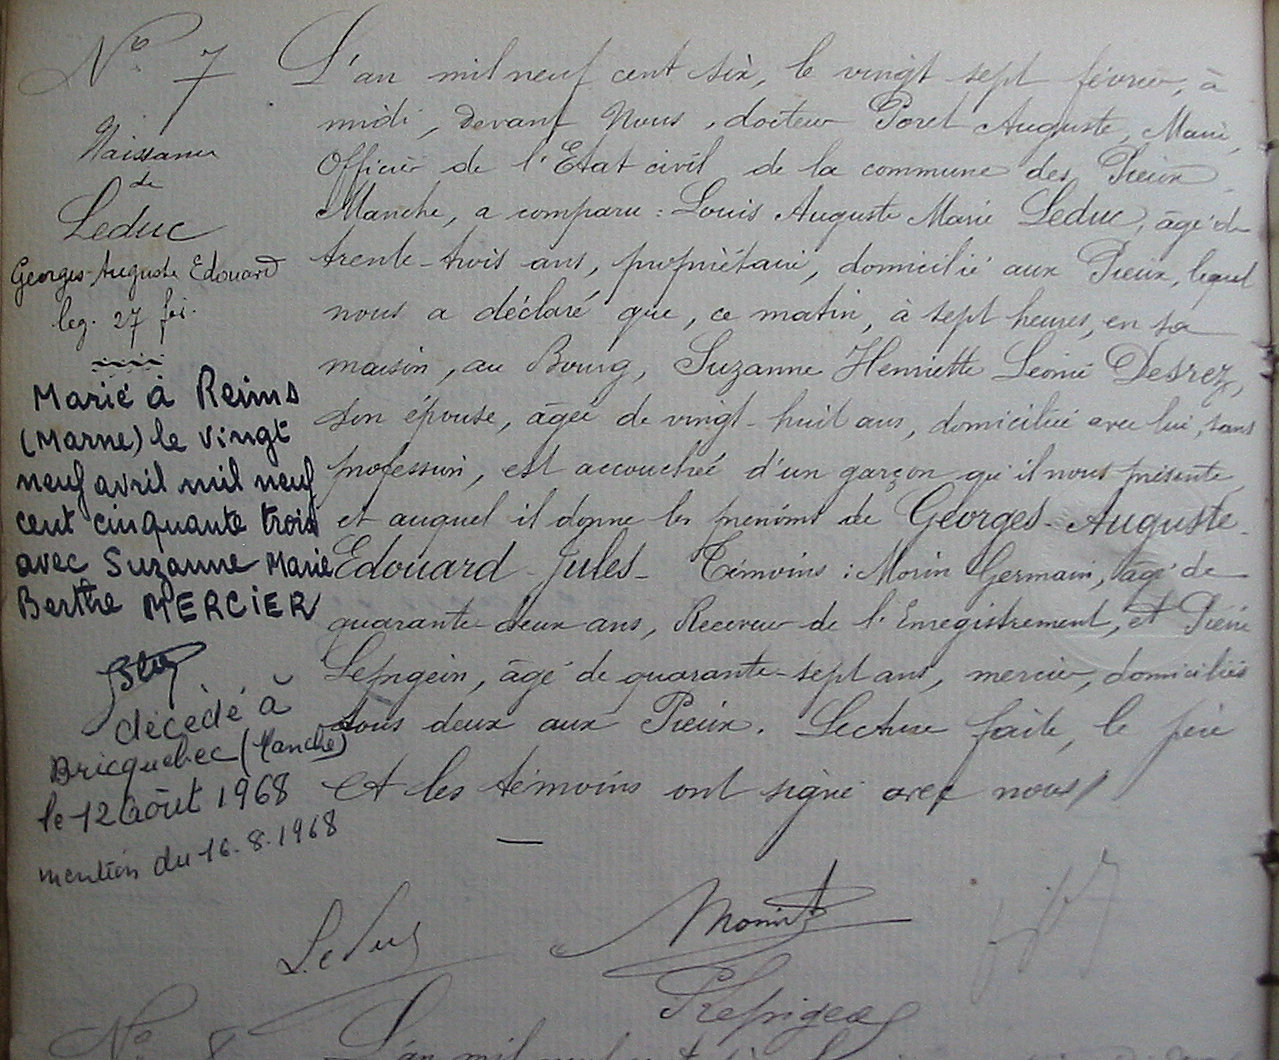 N° 7
Naissance
de
Leduc
Georges-Auguste Edouard
leg. 27 fév.
Marié à Reims
(Marne) le vingt
neuf avril mil neuf
cent cinquante trois
avec Suzanne Marie
Berthe MERCIER
décédé à
Bricquebec (Manche)
le 12 août 1968
mention du 16.8.1968
L'an mil neuf cent six, le vingt sept février, à
midi, devant Nous, docteur Poret Auguste, Maire,
Officier de l'Etat civil de la commune des Pieux
Manche, a comparu : Louis Auguste Marie Leduc, âgé de
trente-trois ans, propriétaire, domicilié aux Pieux, lequel
nous a déclaré que, ce matin, à sept heures, en sa
maison, au Bourg, Suzanne Henriette Léonie Desrez,
son épouse, âgée de vingt-huit ans, domiciliée avec lui, sans
profession, est accouchée d'un garçon qu'il nous présente
et auquel il donne les prénoms de Georges-Auguste-
Edouard-Jules- Témoins : Morin Germain, âgé de
quarante deux ans, Receveur de l'Enregistrement, et Pierre
âgé de quarante-sept ans, mercier, domiciliés
tous deux aux Pieux. Lecture faite, le père
et les témoins ont signé avec nous
Leduc
Morin
N° 8
L'an mil neuf